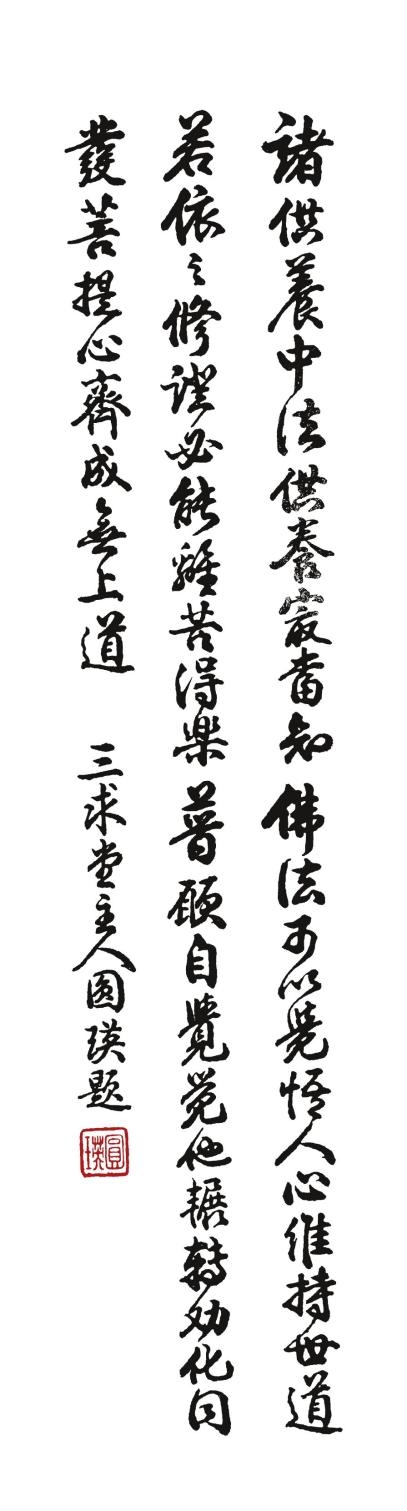 諸供養中法供養最當知佛法可以覺悟人心維持世道
若依之修證必能離苦得樂普願自覺覺他輾轉劝化同
發菩提心齊成無上道
三求堂主人圓瑛題
圓瑛